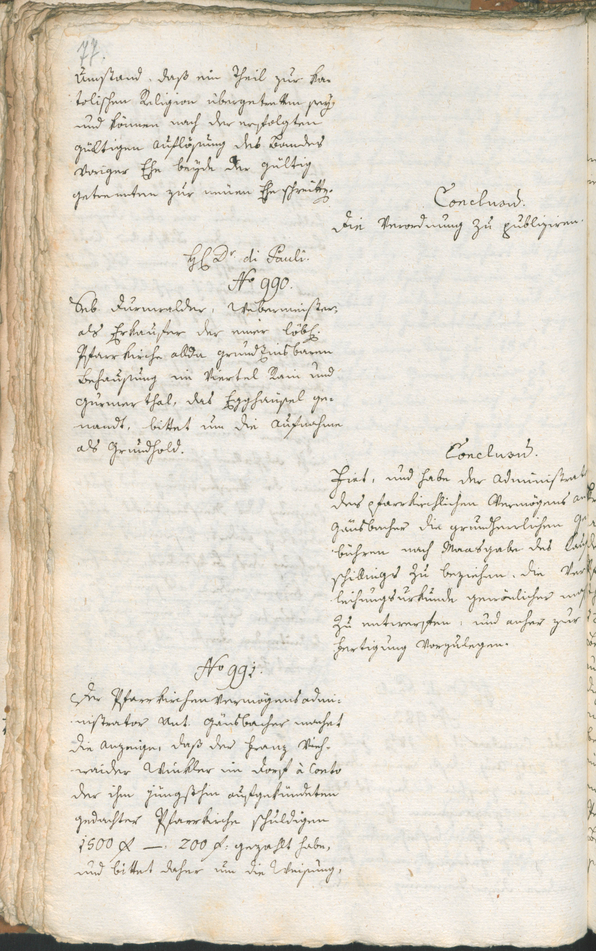 77.
Umstand, daß ein Theil zur ka-
tolischen Religion übergetretten sey,
und können nach der erfolgten
gültigen Auflösung des Bandes
voriger Ehe beyde der gültig
getrennten zur neuen Ehe schreitten.
Conclusum.
Die Verordnung zu publiziren.
H Dr di Pauli.
No 990.
Seb. Webermeister,
als Erkaufer der einer löbl.
Pfarrkirche allda grundzinsbaren
Behausung im Viertel Rain und
das Egghäusel ge-
nandt, bittet um die Aufnahme
als Grundhold.
Conclusum.
Fiat, und habe der Administrator
des pfarrkirchlichen Vermögens
Gänsbacher die grundherrlichen Ge-
bühren nach Maasgabe des Kauf-
schillings zu beziehen, die Ver-
leihungsurkunde gewönlicher
zu entwerffen, und anher zur
Fertigung vorzulegen.
No 991.
Der Pfarrkirchenvermögensadmi-
nistrator Ant. Gänsbacher machet
die Anzeige, daß der Franz Vieh-
waider Winkler im Dorf à Conto
der ihm jüngsthin aufgekündeten
gedachter Pfarrkirche schuldigen
1500 f — 200 f: gezahlt habe,
und bittet daher um die Weisung,